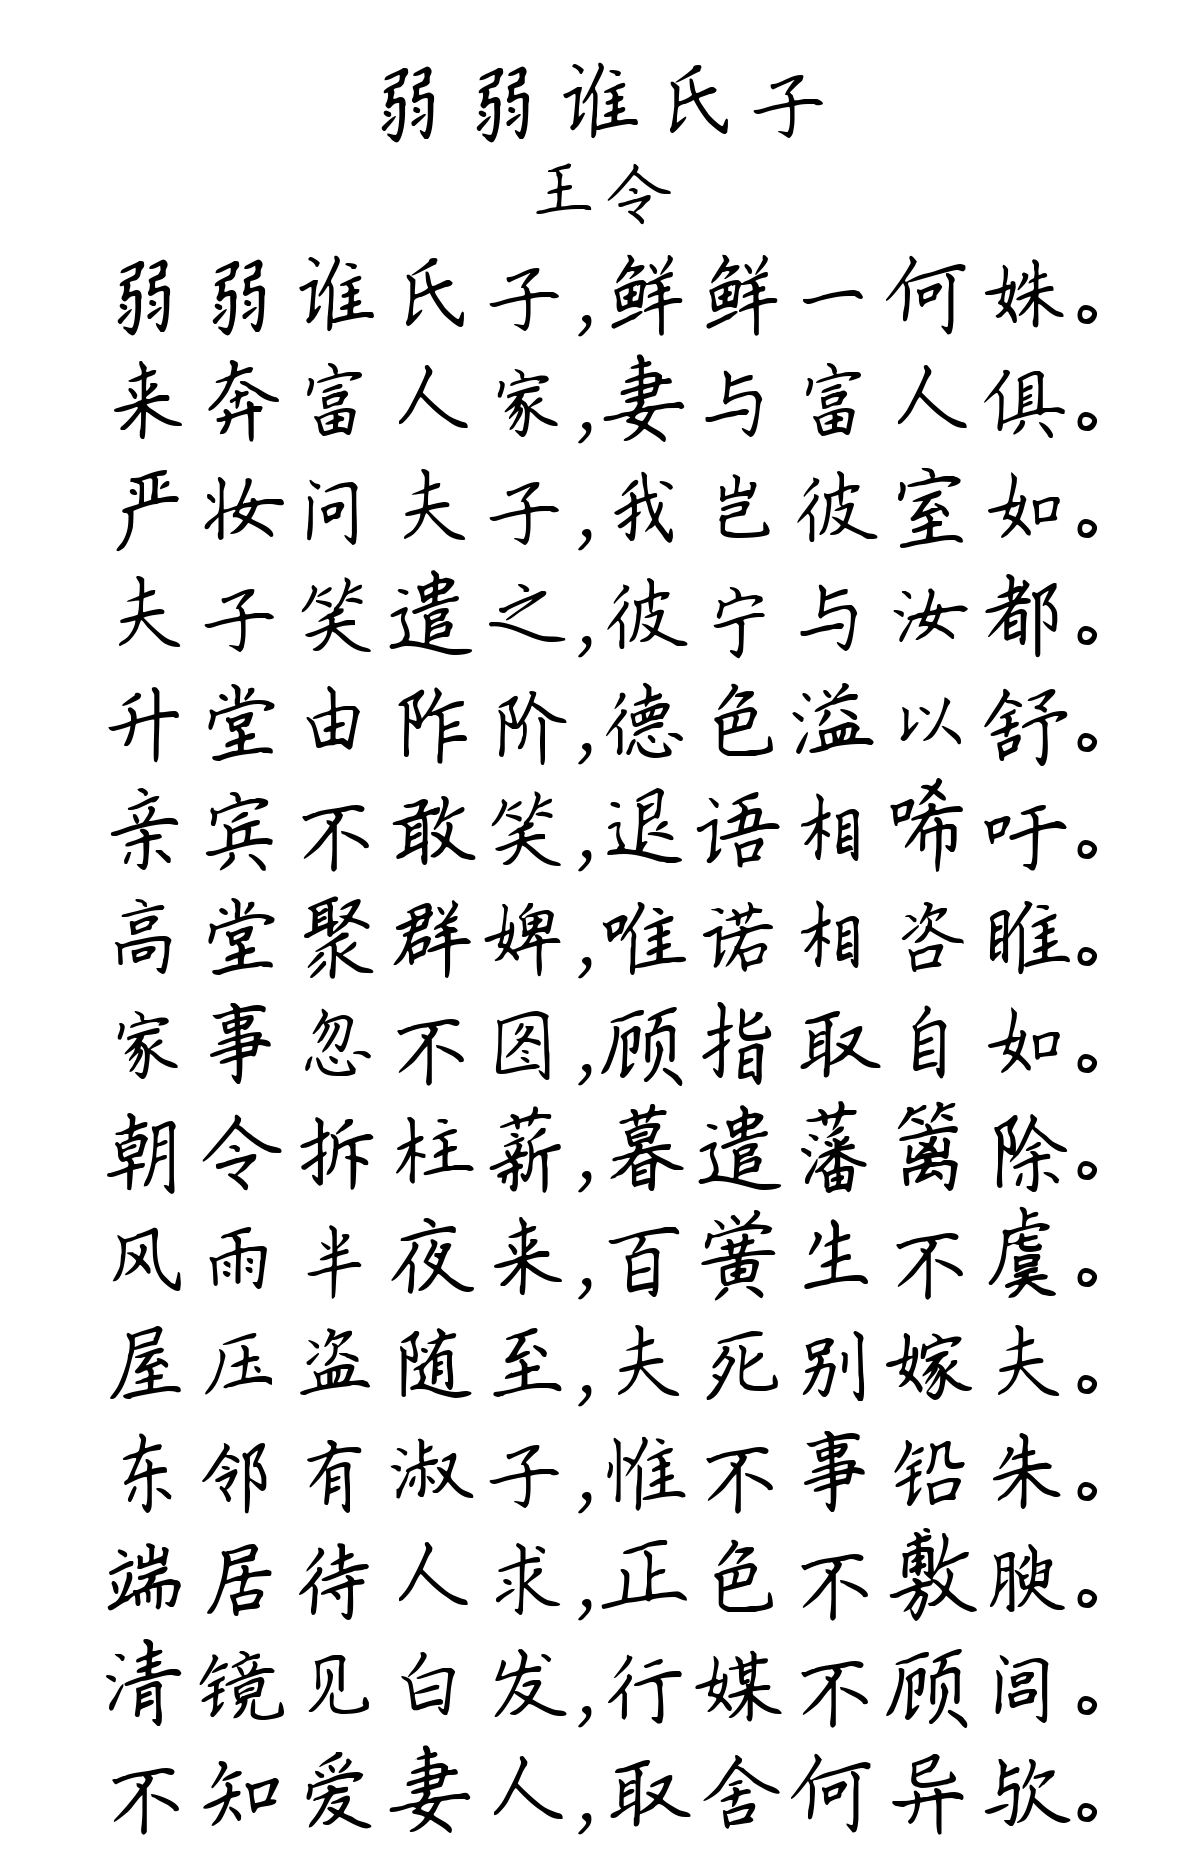 弱弱谁氏子
王令
弱弱谁氏子,鲜鲜一何姝。
来奔富人家,妻与富人俱。
严妆问夫子,我岂彼室如。
夫子笑遣之,彼宁与汝都。
升堂由阼阶,德色溢以舒。
亲宾不敢笑,退语相唏吁。
高堂聚群婢,唯诺相咨睢。
家事忽不图,顾指取自如。
朝令拆柱薪,暮遣藩篱除。
风雨半夜来,百黉生不虞。
屋压盗随至,夫死别嫁夫。
东邻有淑子,惟不事铅朱。
端居待人求,正色不敷腴。
清镜见白发,行媒不顾闾。
不知爱妻人,取舍何异欤。